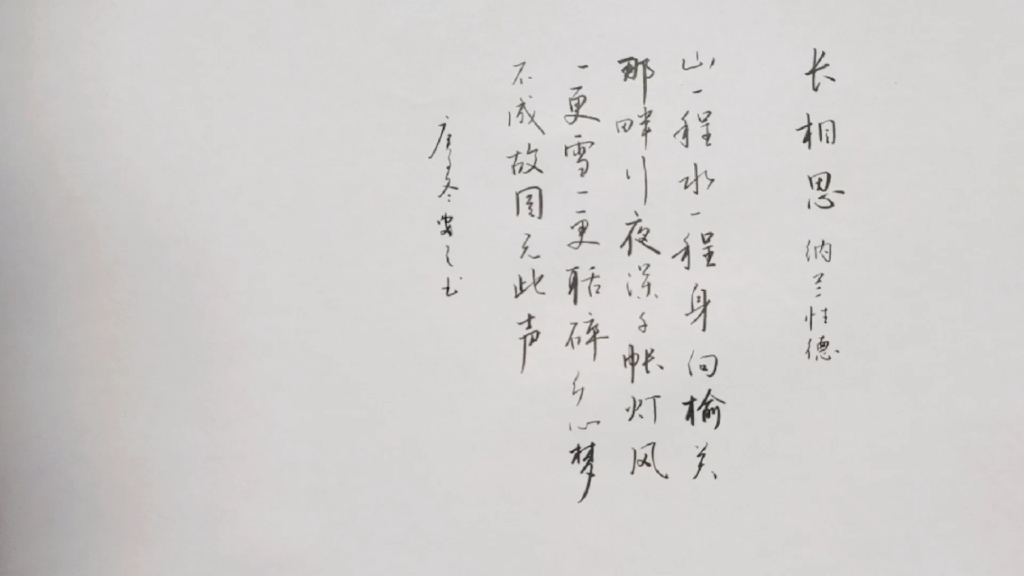 长相思 纳兰性德
山一程水一程身向榆关
那畔行夜深千帐灯风
一更雪一更聒碎乡心梦
不成故园无此声
庚子冬之书